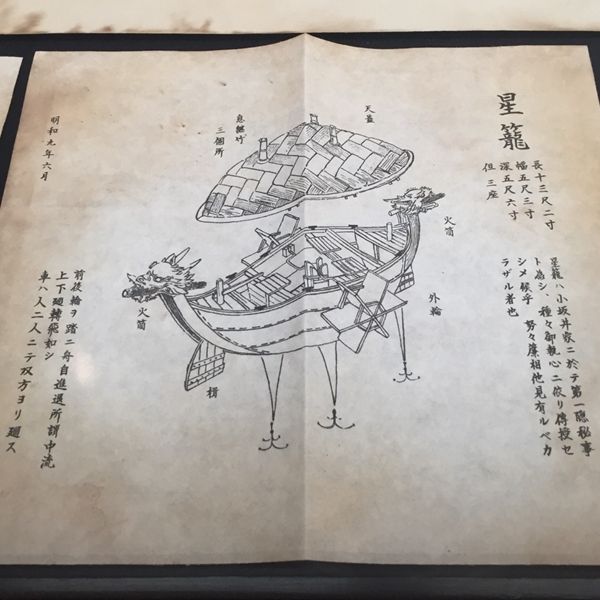 星籠
長十三尺二寸
幅五尺三寸
深五尺六寸
但三座
星籠ハ小坂井家ニ於テ第一隠秘事
ト為シ、種々御執心ニ依リ傳授セ
シメ候乎 努々麁相他見有ルベカ
ラザル者也
天蓋
息継竹
三個所
火筒
外輪
火筒
楫
前後輪ヲ踏ニ舟自進退所謂中流
上下廻轉飛如シ
車ハ人二人ニテ双方ヨリ廻ス
明和九年六月